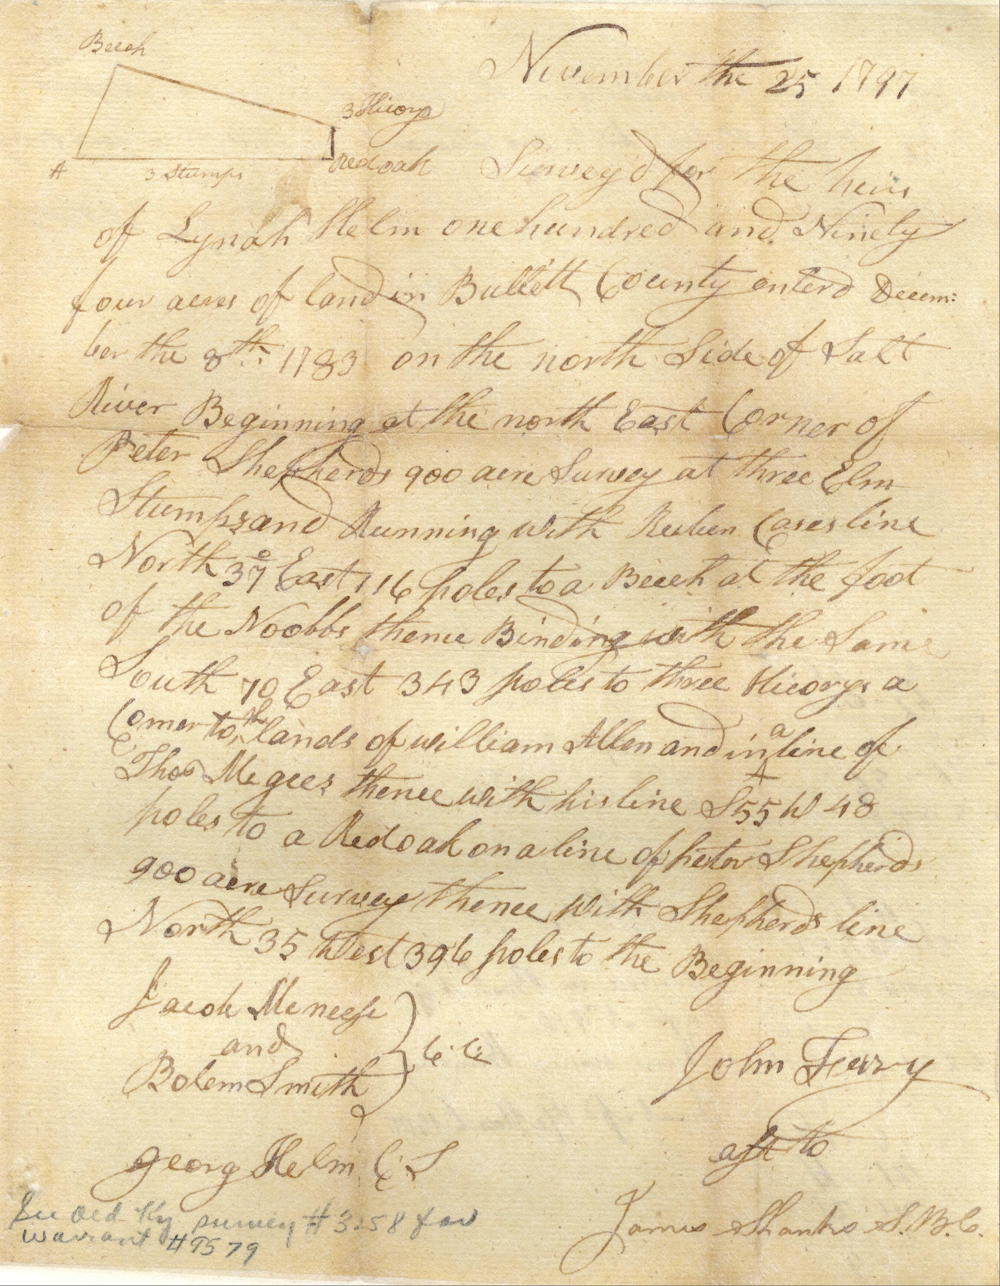 Beech
3 Hicorys
Red oak
A
3 Stumps
November the 25 1797
Survey'd for the heirs
of Lynah Helm one hundred and Ninety
four acres of land in Bullett County enterd Decem:
ber the 8th: 1783 on the north Side of Salt
River Beginning at the north East Corner of
Peter Shepherds 900 acre Survey at three Elm
Stumps and Running with Reuben Cases line
North 37° East 116 poles to a Beech at the foot
of the Noobbs thence Binding with the Same
South 70 East 343 poles to three Hicorys a
Corner to the lands of william Allen and in a line of
Thos Megees thence with his line S 55 W 48
poles to a Red oak on a line of peter Shepherds
900 acre Survey thence With Shepherds line
North 35 West 396 poles to the Beginning
Jacob Meneese
and
Bolem Smith
C C
georg Helm C S
John Ferry
asst to
James Shanks S. B. C.
See old Ky survey #3258 for
warrant #9579